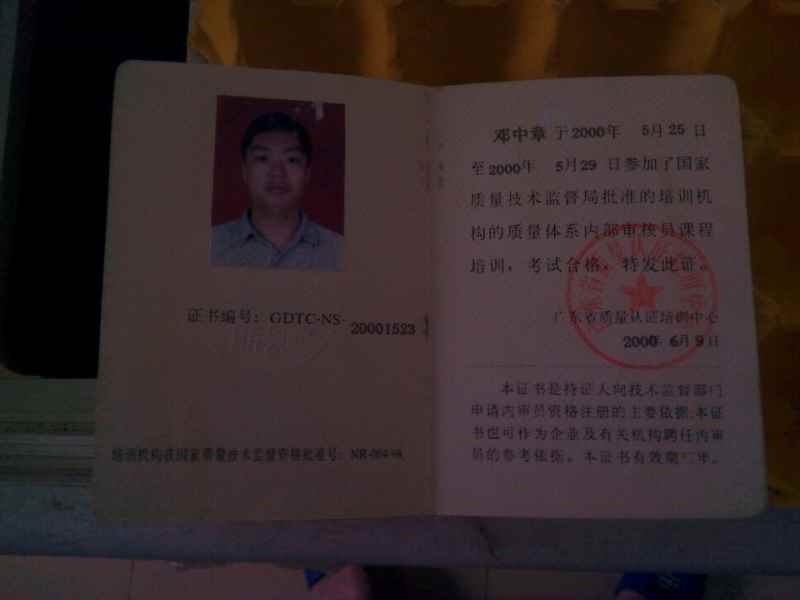 证书编号：GDTC-NS-20001523
培训机构获国家质量技术监督资格批准号：
邓中章 于2000年 5月25日
至2000年 5月29日参加了国家
质量技术监督局批准的培训机
构的质量体系内部审核员课程
培训，考试合格，特发此证。
广东省质量认证培训中心
2000年 6月9日
本证书是持证人向技术监督部门
申请内审员资格注册的主要依据，本证
书也可作为企业及有关机构聘任内审
员的参考依据。本证书有效期三年。